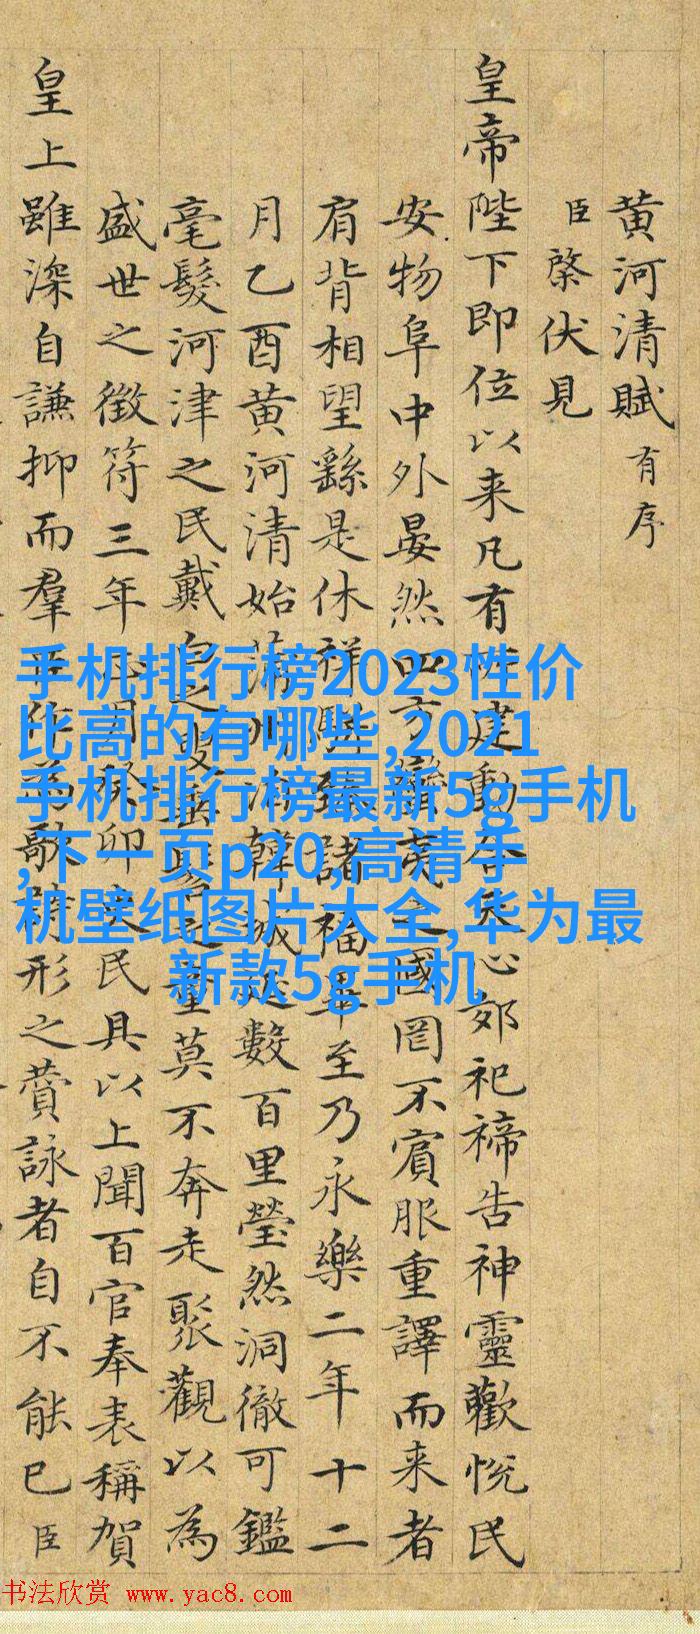 黄河清賦 有序
臣棨伏見
皇帝陛下即位以来凡有所建動合天心郊祀禘告神靈歡悦民
安物阜中外晏然四方蠻夷之國罔不賓服重譯而来者
肩背相望繇是休祥駢臻諸福畢至乃永樂二年十二
月乙酉黄河清始蒲州韓城延數百里瑩然洞徹可鑑
毫髮河津之民戴白之叟髫之童莫不奔走聚觀以為
盛世之徵符三年正月癸卯民具以上聞百官奉表稱賀
皇上雖深自謙抑而羣臣作為歌詩形之賛詠者自不能已臣
手机排行榜2023性价
比高的有哪些,2021
手机排行榜最新5g手机
,下一页p20,高清手
机壁纸图片大全,华为最
新款5g手机
书法欣赏 www.yac8.com